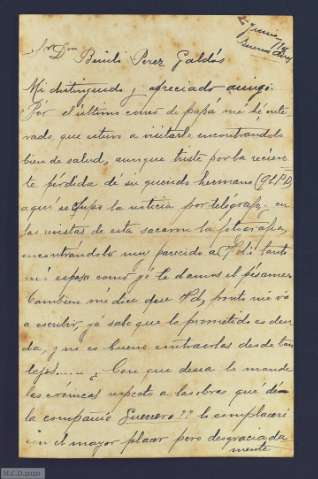 Sr. Dn Benito Perez Galdós
Mi distinguido y apreciado amigo:
Por el último correo de papá me he ente
rado, que estuvo a visitarlo encontrandolo
bien de salud, aunque triste por la recien
te pérdida de su querido hermano (Q.E.P.D)
aquí se supo la noticia por telégrafo, en
las revistas de esta sacaron la fotografía,
encontrándolo muy parecido a Vd; tanto
mi esposo como yo le damos el pésame.
Tambien me dice que Vd, pronto me vá
a escribir, yá sabe que lo prometido es deu
da, y no es bueno contraerlas desde tan
lejos..... ¿Con que desea le mande
las crónicas respecto a las obras que dé
la compañia Guerrero?? lo complaceré
con el mayor placer pero desgraciada
mente
M.C.D. 2020